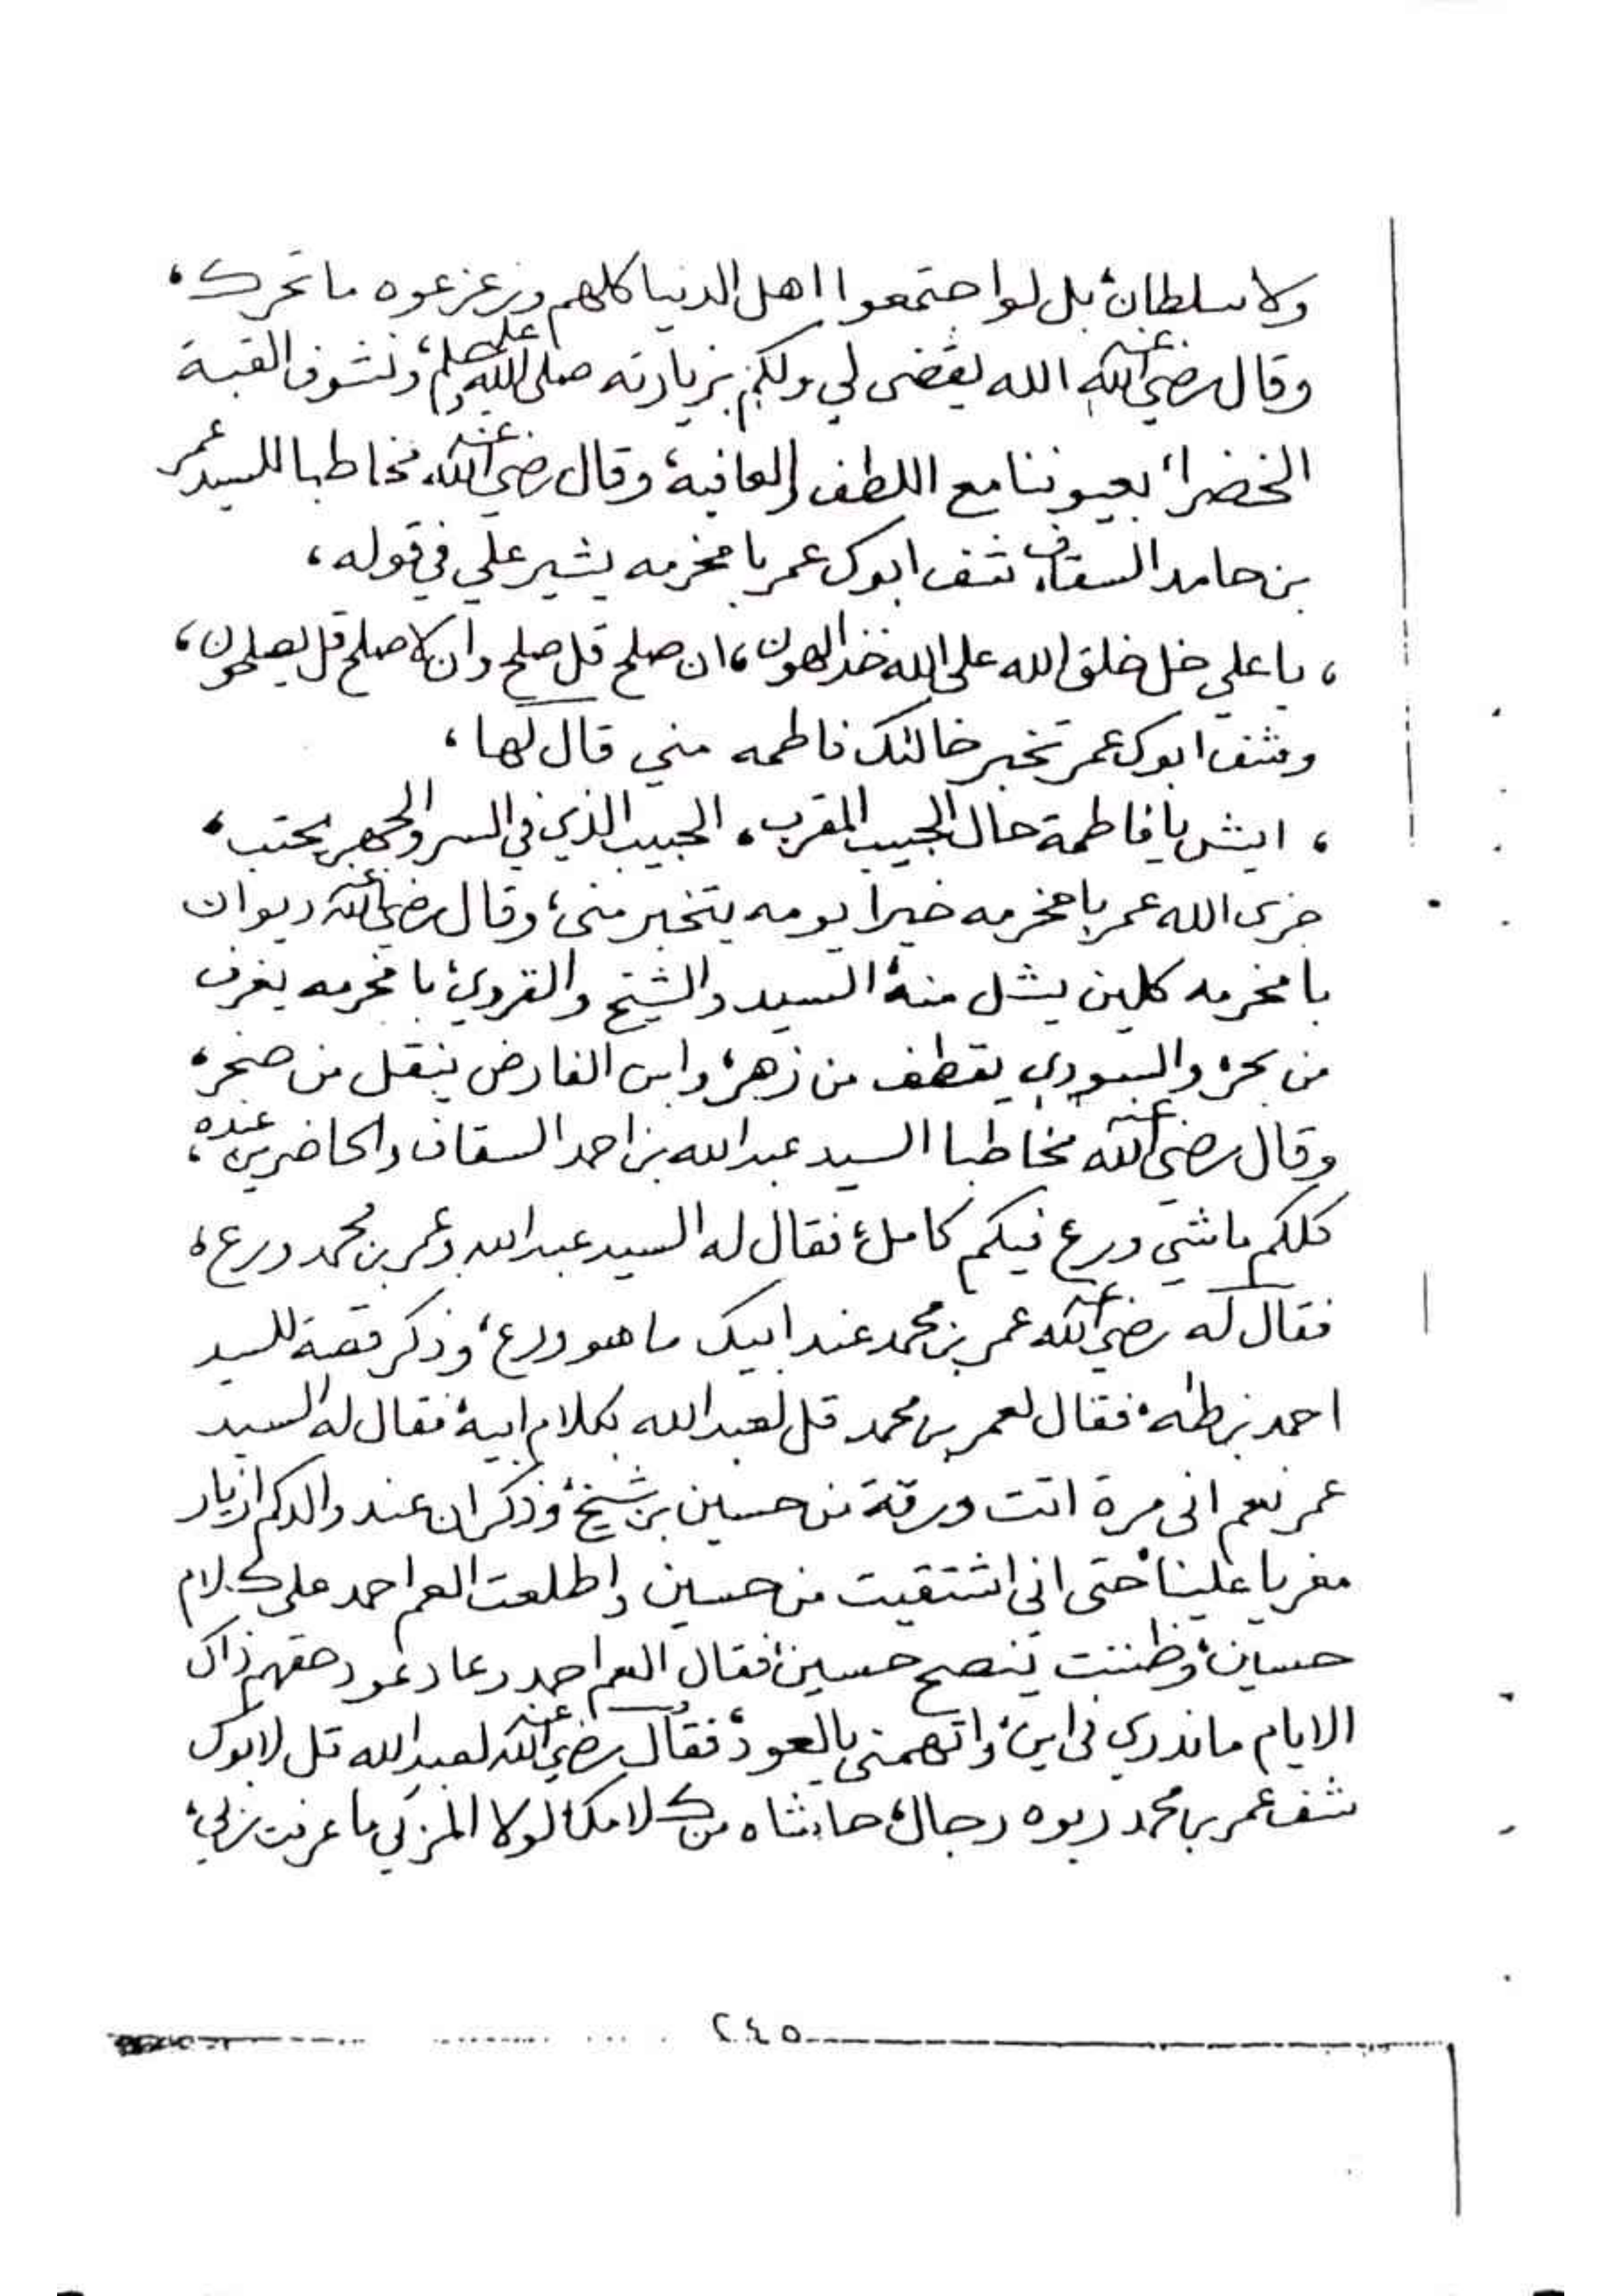 ولا سلطان، بل لو اجتمعوا اهل الدنيا كلهم وزعزعوه ما تحرك،
وقال رضي الله عنه الله يقضى لي ولكم بزيارته صلى الله عليه وسلم، ونشوف القبة
الخضراء بعيوننا مع اللطف والعافية، وقال رضي الله عنه مخاطبا للسيد عمر
بن حامد السقاف شف ابوك عمر بامخرمه يشير علي في قوله،
، يا علي خل خلق الله على الله خذ الهون، ان صلح قل صلح وان لا صلح قل يصلحون،
وشف ابوك عمر تخبر خالتك فاطمه مني قال لها،
، ايش يا فاطمة حال الحبيب المقرب، الحبيب الذي في السر والجهر يحتب،
جزى الله عمر بامخرمه خيرا يومه يتخبر منى، وقال رضي الله عنه ديوان
بامخرمه كلين يشل منه، السيد والشيخ والقروي، بامخرمه يغرف
من بحر، والسودي يقطف من زهر، وابن الفارض ينقل من صخر،
وقال رضي الله عنه مخاطبا السيد عبدالله بن احمد السقاف والحاضرين عنده،
كلكم ماشي ورع فيكم كامل، فقال له السيد عبدالله وعمر بن محمد ورع،
فقال له رضي الله عنه عمر بن محمد عند ابيك ما هو ورع، وذكر قصة للسيد
احمد بن طه، فقال لعمر بن محمد قل لعبدالله بكلام ابيه، فقال له السيد
عمر نعم انى مرة اتت ورقة من حسين بن شيخ، وذكر ان عند والدكم ازيار
مغربا علينا، حتى انى اشتقيت من حسين واطلعت العم احمد على كلام
حسين، وظننت ينصح حسين، فقال العم احمد وعاد عود حقهم ذاك
الايام ماندري فى اين، واتهمنى بالعود، فقال رضي الله عنه لعبدالله قل لابوك
شف عمر بن محمد ربوه رجال، حاشاه من كلامك، لولا المربي ما عرفت ربي،
٢٤٥